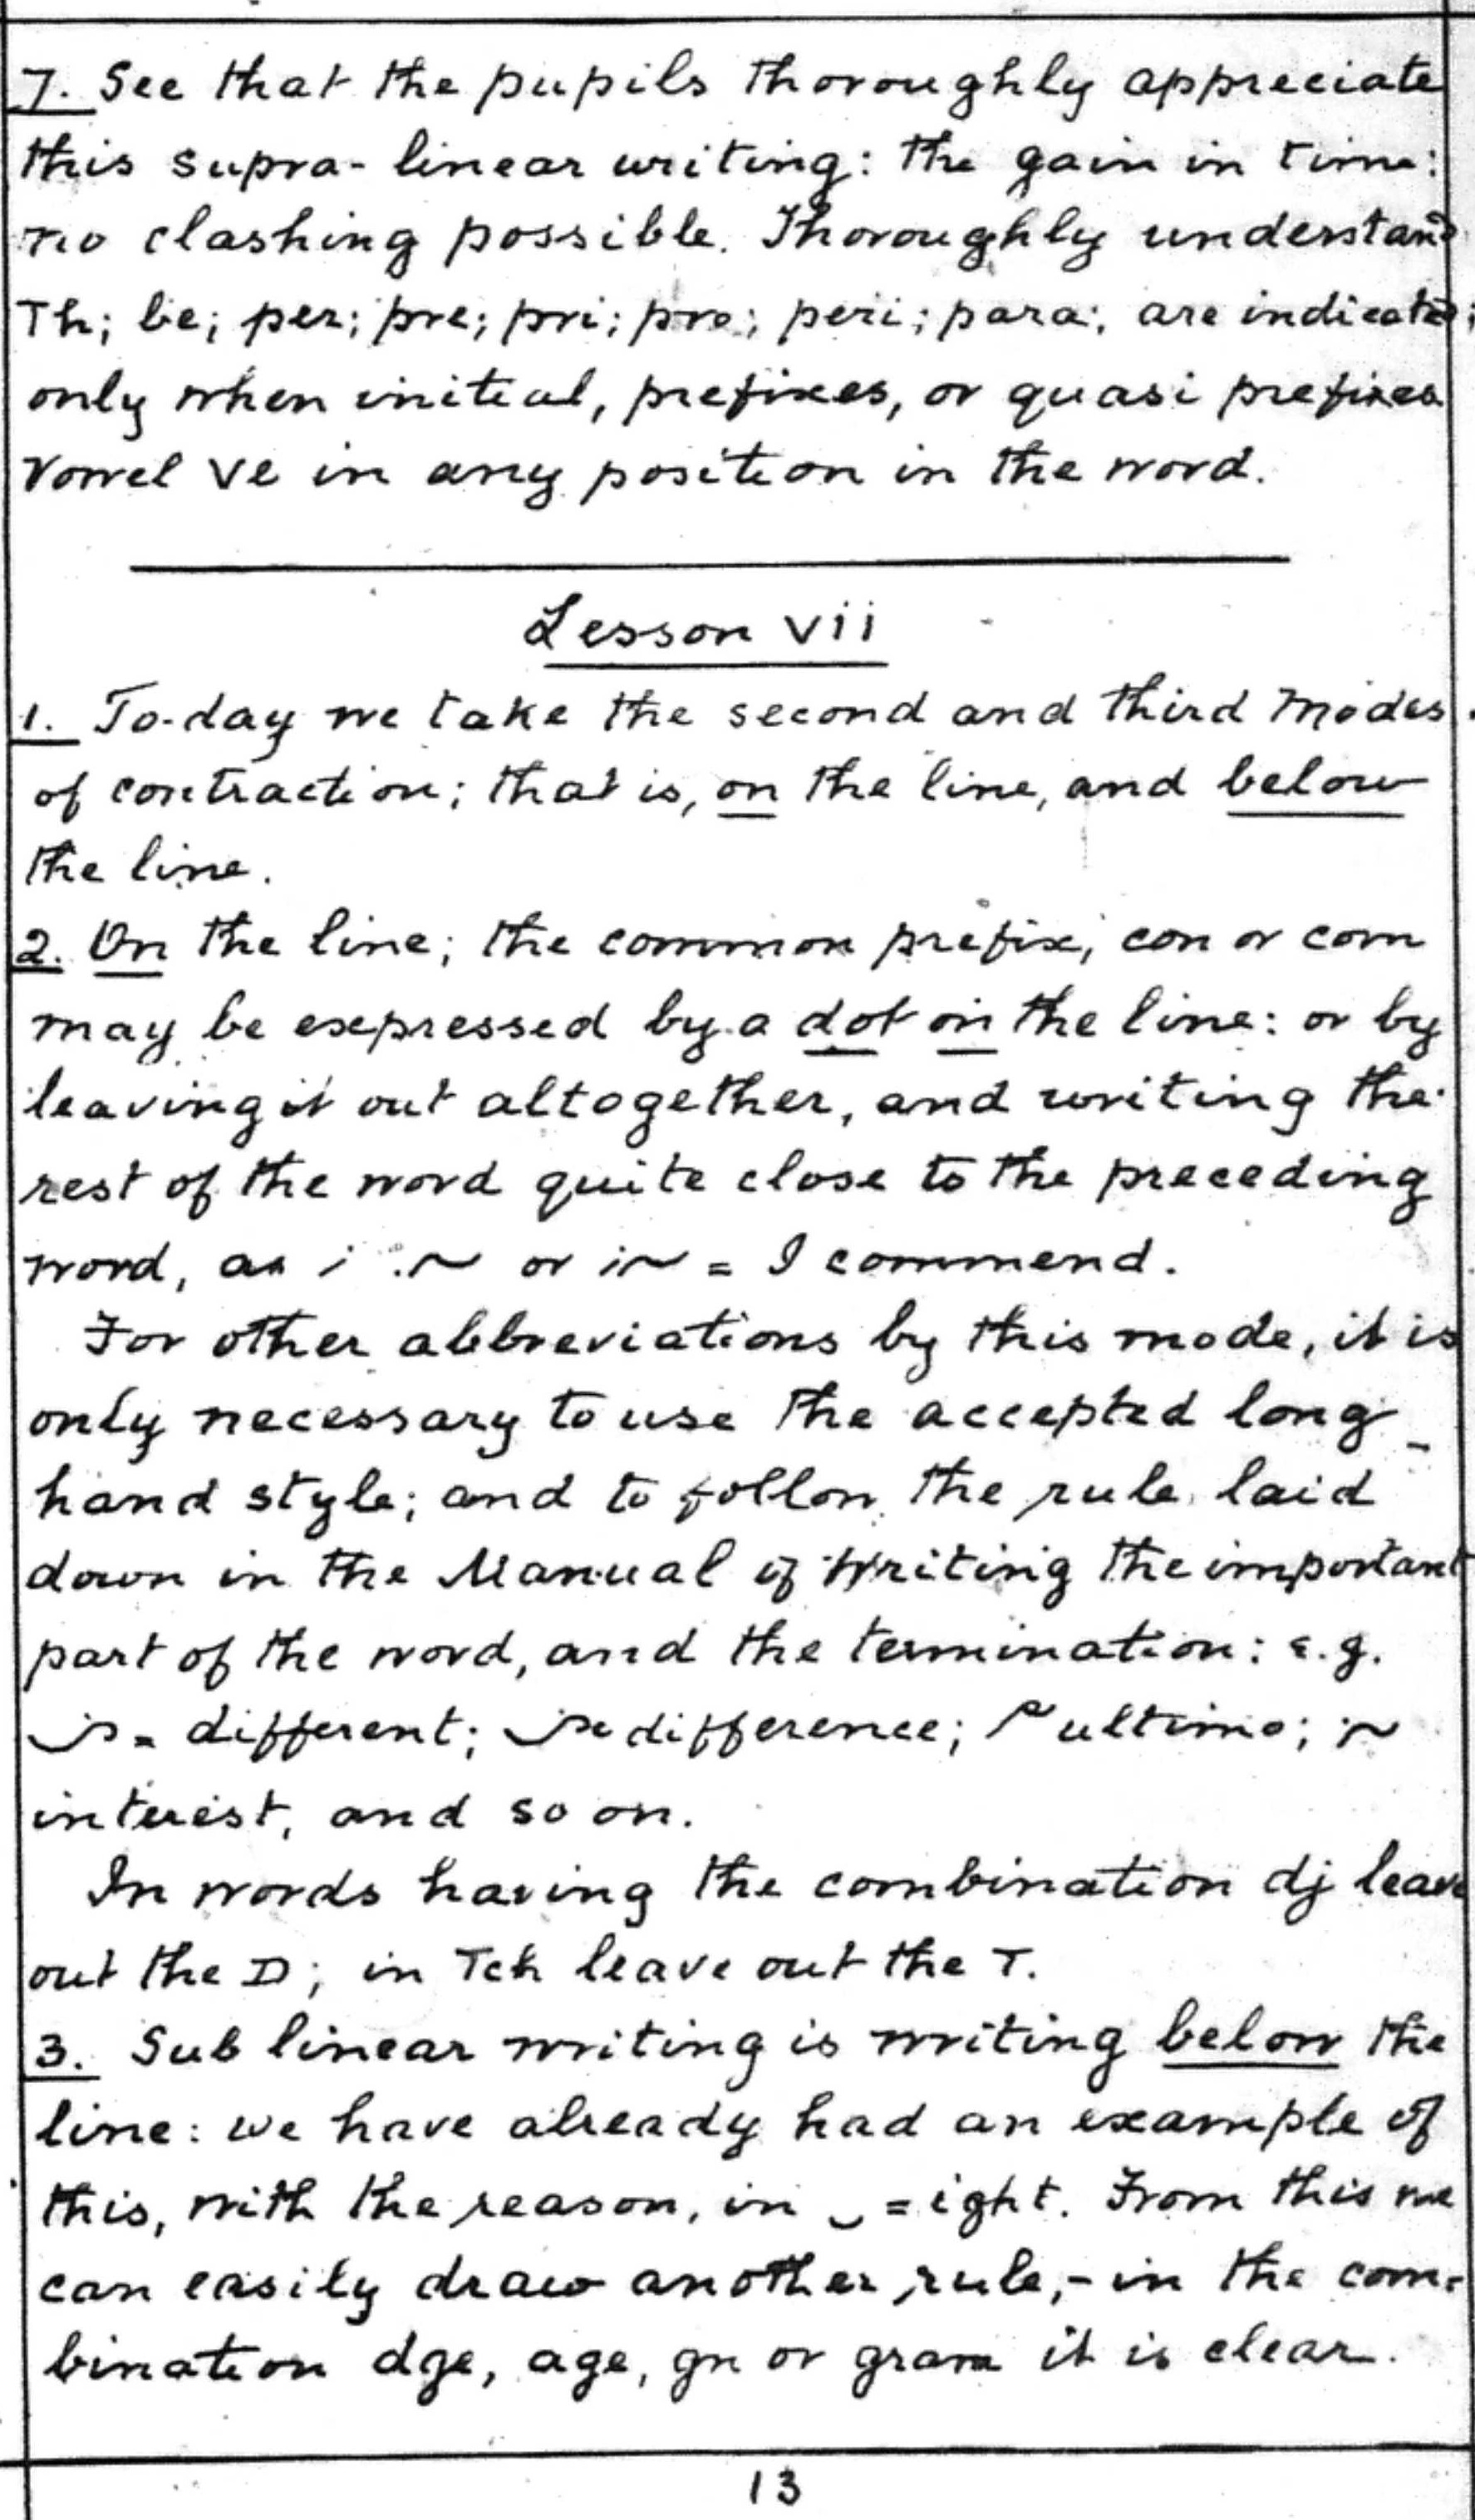 7. See that the pupils thoroughly appreciate
this supra-linear writing: the gain in time:
no clashing possible. Thoroughly understand
Th; be; per; pre; pri; pro; peri; para; are indicated;
only when initial, prefixes, or quasi prefixes
Vowel ve in any position in the word.
Lesson vii
1. To-day we take the second and third modes
of contraction; that is, on the line, and below
the line.
2. On the line; the common prefix; con or com
may be expressed by a dot on the line: or by
leaving it out altogether, and writing the
rest of the word quite close to the preceding
word, as i . or i = I commend.
For other abbreviations by this mode, it is
only necessary to use the accepted long-
hand style; and to follow the rule laid
down in the Manual of Writing the important
part of the word, and the termination: e.g.
= different; difference; ultimo;
interest, and so on.
In words having the combination dj leave
out the D; in Tch leave out the T.
3. Sub linear writing is writing below the
line: we have already had an example of
this, with the reason, in = ight. From this we
can easily draw another rule,- in the com-
bination dge, age, gn or gram it is clear.
13